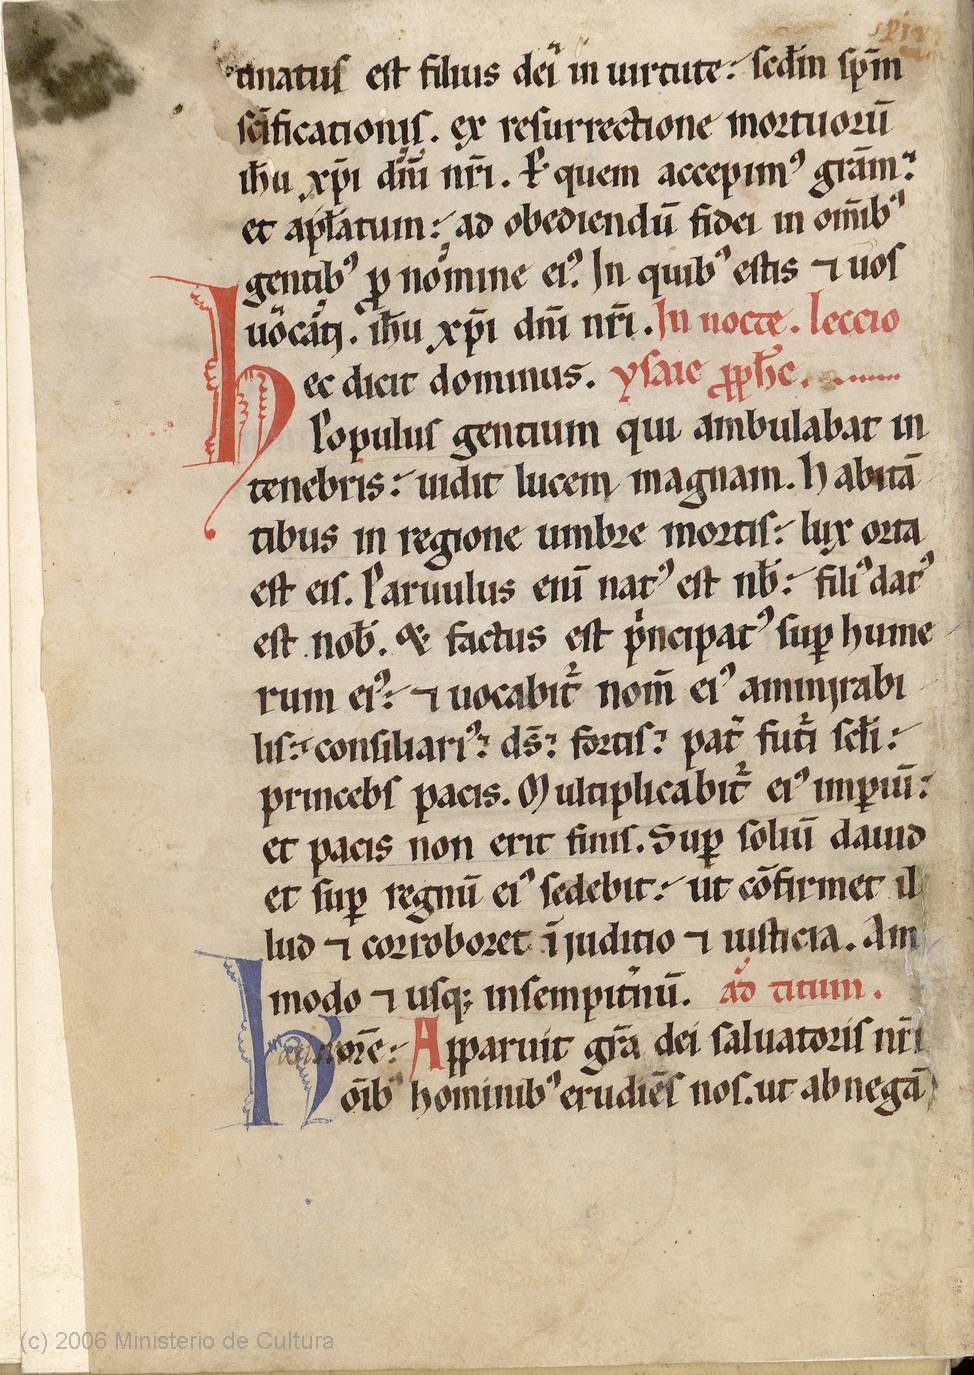 tinatus est filius dei in uirtute: sedm spm̄
scīficationis. ex resurrectione mortuorū
ih̄u xp̄i dn̄i nr̄i. P̱ quem accepimꝰ grām:
et ap̄latum: ad obediendū fidei in om̄ibꝰ
gentibꝰ ꝓ nomine eiꝰ. In quibꝰ estis ⁊ uos
uocati. ih̄u xp̄i dn̄i nr̄i. In nocte. leccio
Hec dicit dominus. ysaie ꝓph̄e.
Populus gentium qui ambulabat in
tenebris: uidit lucem magnam. Habitā
tibus in regione umbre mortis: lux orta
est eis. Paruulus eni᷑ natꝰ est nb̄: filiꝰ datꝰ
est nob̄. & factus est pⁱncipatꝰ suꝑ hume
rum eiꝰ: ⁊ uocabit᷑ nom̄ eiꝰ ammirabi
lis: consiliariꝰ: ds̄: fortis: pat᷑ fut᷑i scl̄i:
princebs pacis. Multiplicabit᷑ eiꝰ imꝑiū:
et pacis non erit finis. Suꝑ soliū dauid
et suꝑ regnū eiꝰ sedebit: ut cōfirmet il
lud ⁊ corroboret ī iuditio ⁊ iusticia. Am
modo ⁊ usqꝫ insempit᷑nū. ad titum.
Apparuit grā dei saluatoris nr̄i
oīb hominibꝰ erudiēs nos. ut abnegā
(c) 2006 Ministerio de Cultura